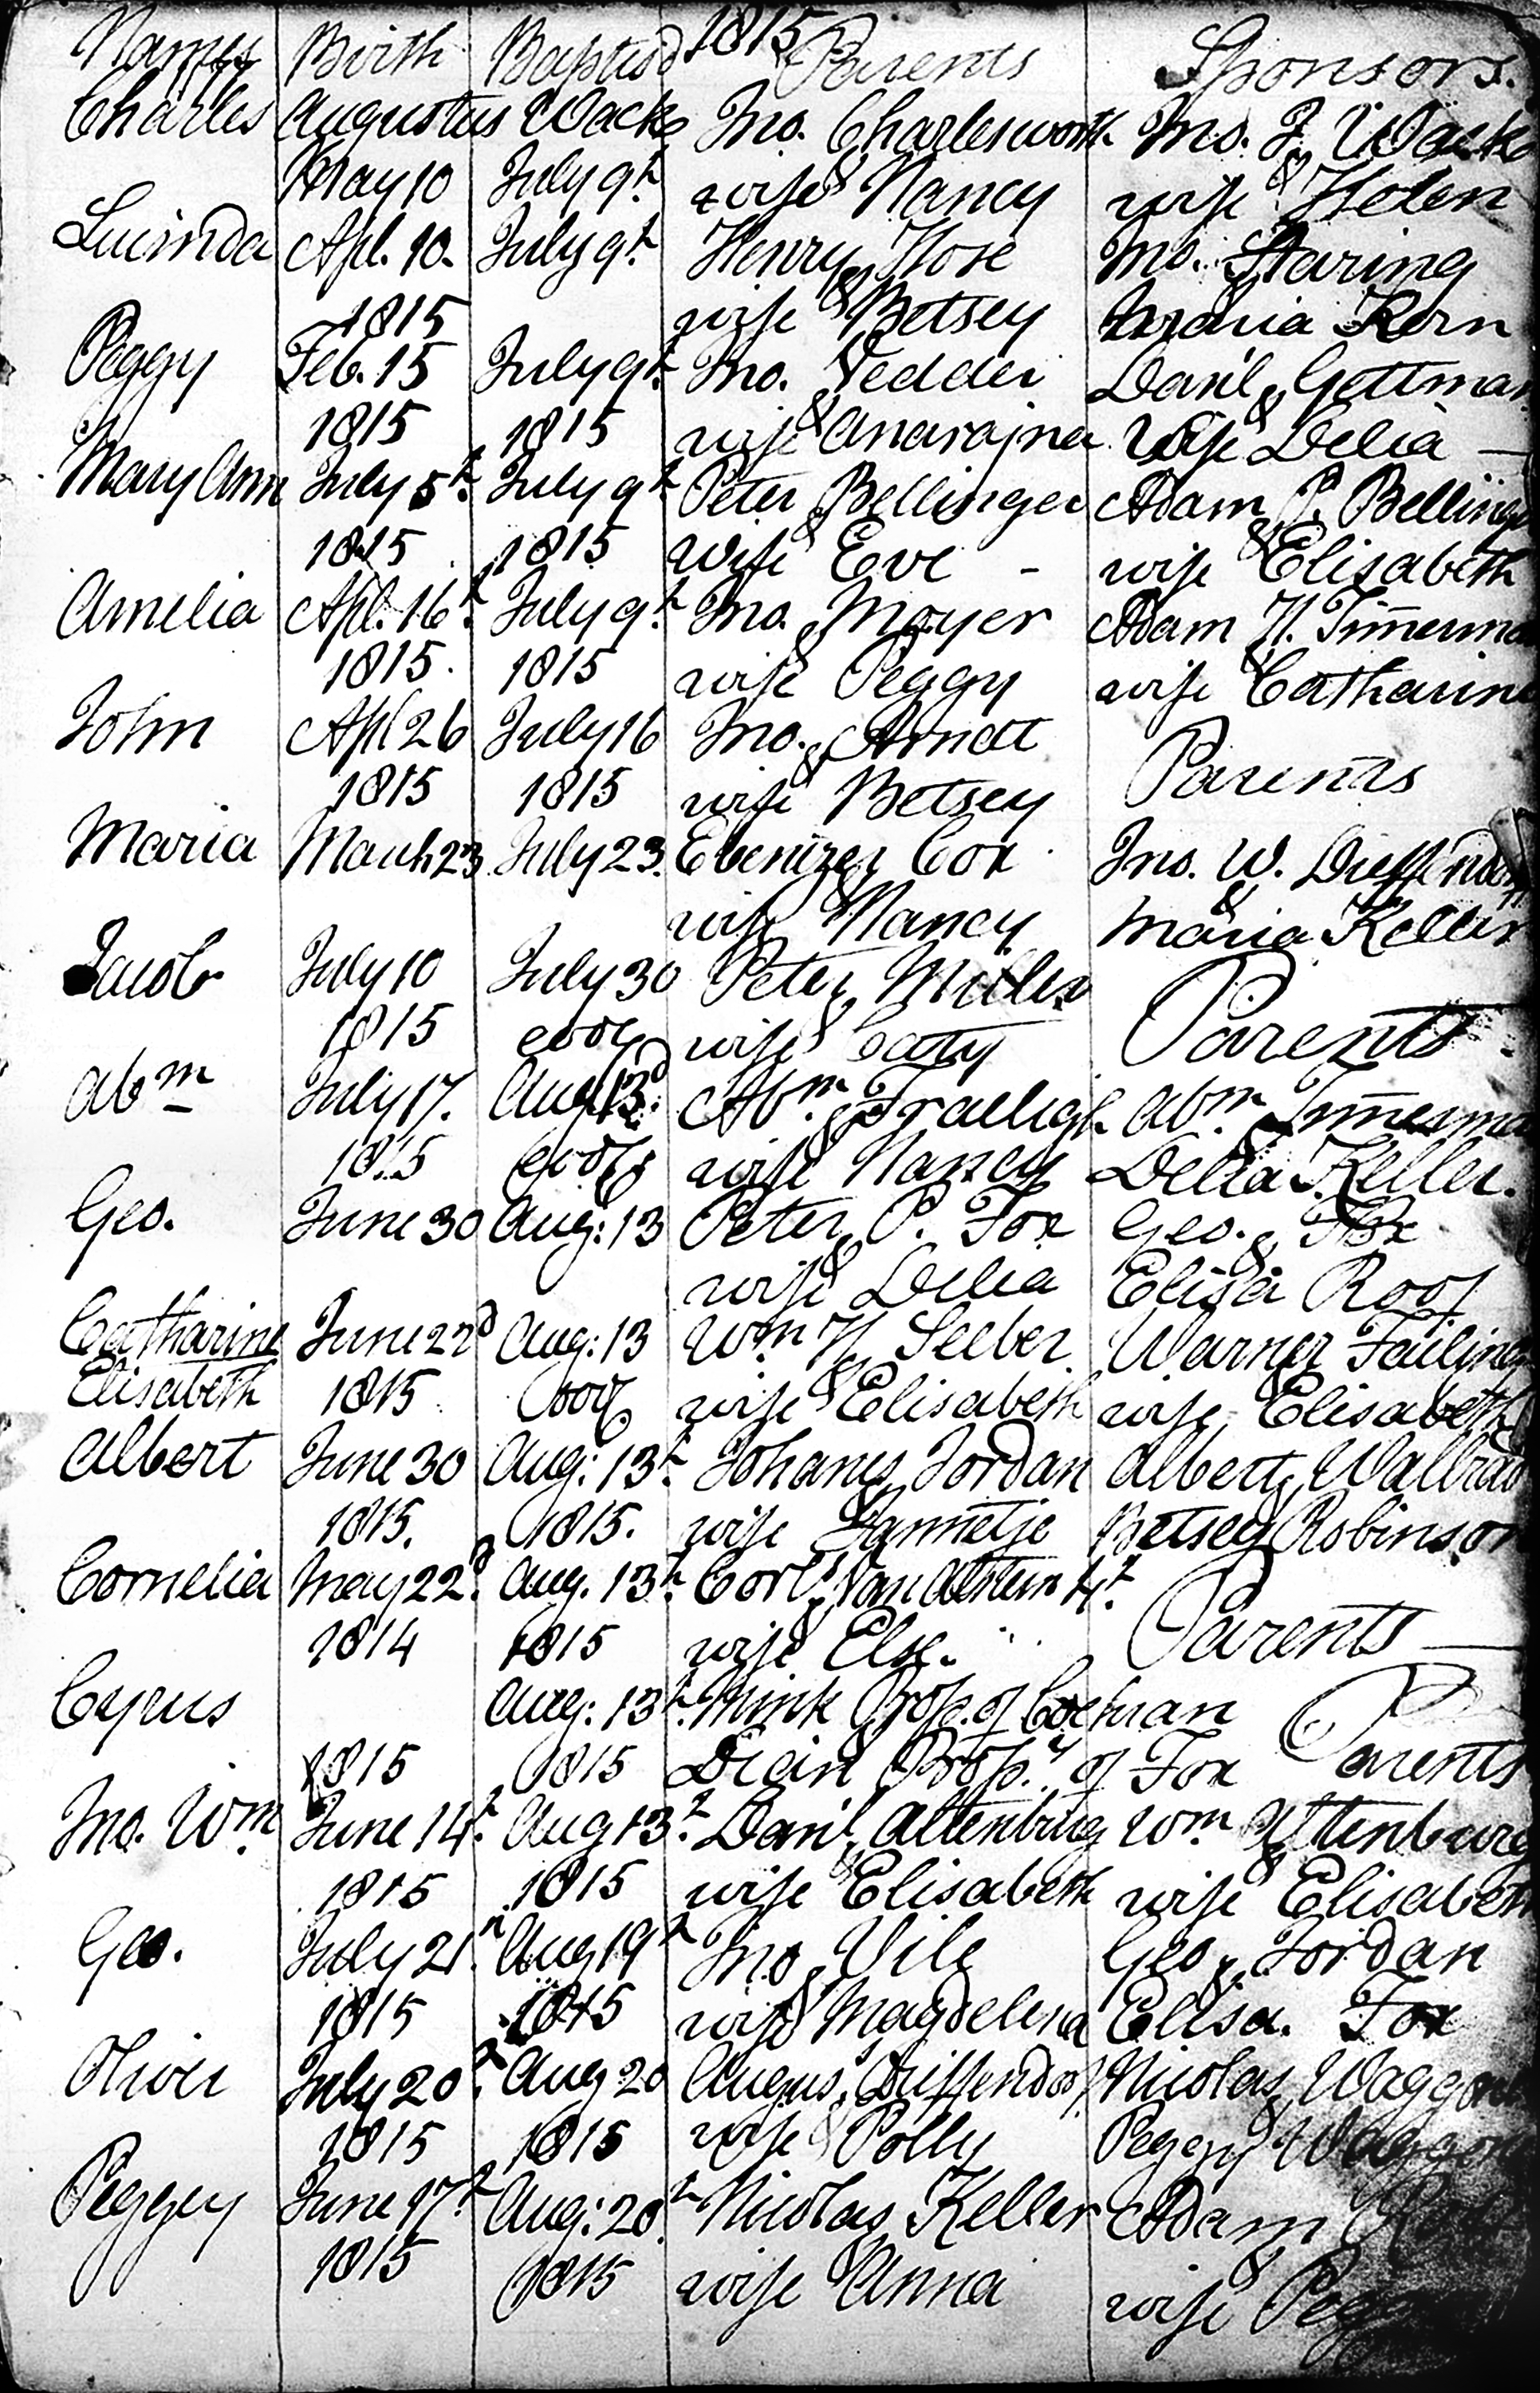 1815
Names Birth Baptisd Parents Sponsors.
Charles Augustus Wack Jno. Charlesworth Jno. J. Wack
May 10 July 9th & wife Nancy & wife Helen
Lucinda Apl. 10. July 9th Henry Hose Jno. Staring
1815 & wife Betsey & Maria Kern
Peggy Feb. 15 July 9th Jno. Vedder Danl. Gettman
1815 1815 & wife & wife Delia
Mary Ann July 5th July 9th Peter Bellinger Adam P. Bellinger
1815 1815 & wife Eve - & wife Elisabeth
Amelia Apl. 16th July 9th Jno. Moyer Adam H. Timerman
1815. 1815 & wife Peggy & wife Catharine
John Apl 26 July 16 Jno. Arndt Parents
1815 1815 & wife Betsey
Maria March 23 July 23. Ebenezer Cox Jno. W. Dieffendorf
& wife Nancy & Maria Keller
Jacob July 10 July 30 Peter Miller Parents
1815 eod & wife Caty
Abm July 17. Aug 13. Abm. Fralligh Abm. Timerman
1815 eod & wife Nancy & Delia Keller.
Geo. June 30 Aug: 13 Peter P. Fox Geo. Fox
& wife Delia & Elisa Roof
Catharine June 22d Aug: 13 Wm H Seeber Warner Failing
Elisabeth 1815 eod & wife Elisabeth & wife Elisabeth
Albert June 30 Aug: 13th Johanes Jordan Albert Walbrad
1815. 1815. & wife Lannetje & Betsey Robinson
Cornelia May 22d Aug. 13th Corls. Van Alstein 4th Parents
1814 1815 & wife Else.
Cyrus Aug: 13th Mink Prop. of Cochran Parents
1815 1815 Dian Propy. of Fox
Jno. Wm June 14th Aug 13th Danl. Altenburg Wm Altenburg
1815 1815 & wife Elisabeth & wife Elisabeth
Geo. July 21 Aug 19th Jno. Vile Geo. Jordan
1815 1815 & wife Magdelena & Elisa. Fox
Oliver July 20th Aug 20 Augus. Diffendorf Nicolas Waggoner
1815 1815 & wife Polly & Peggy Waggoner
Peggey June 17th Aug: 20th Nicolas Keller Adam
1815 1815 & wife Anna & wife